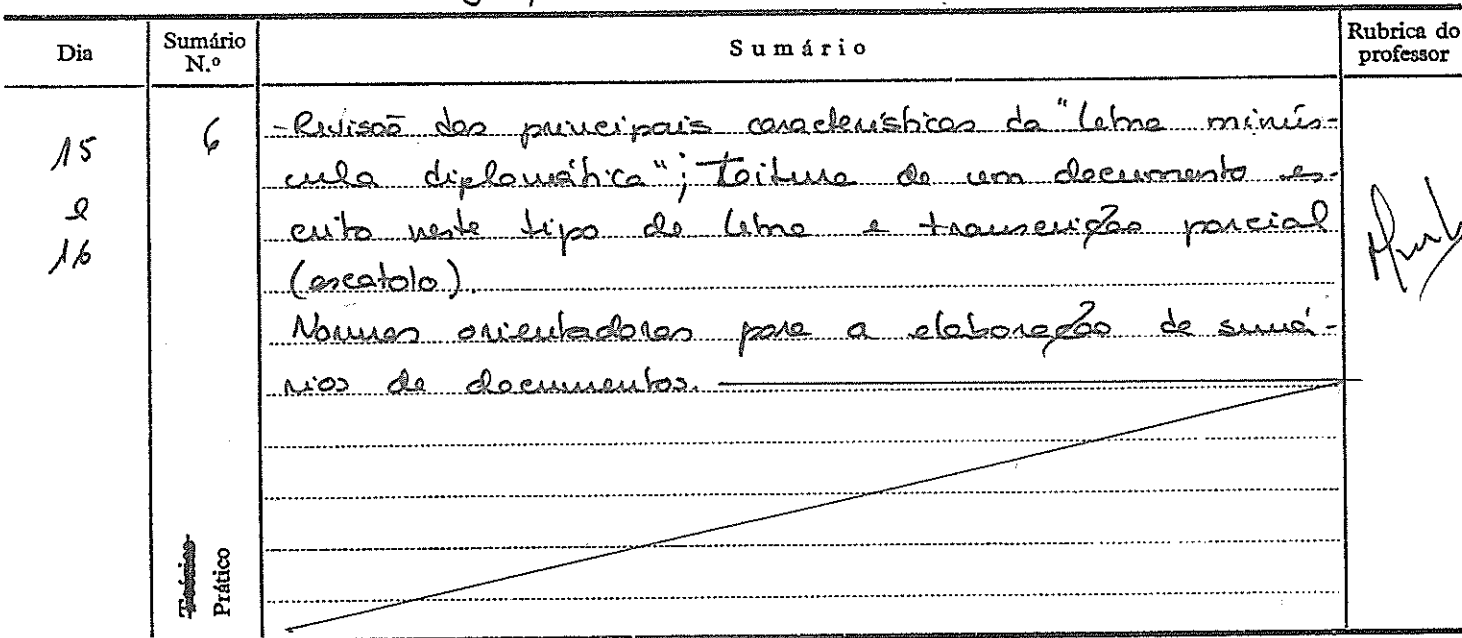 Dia
Sumário N.º
Sumário
Rubrica do professor
15 e 16
6
- Revisão das principais características da "letra minús-
cula diplomática"; Leitura de um documento es-
crito neste tipo de letra e transcrição parcial
(escatolo).
Normas orientadoras para a elaboração de sumá-
rios de documentos.
Teórico
Prático